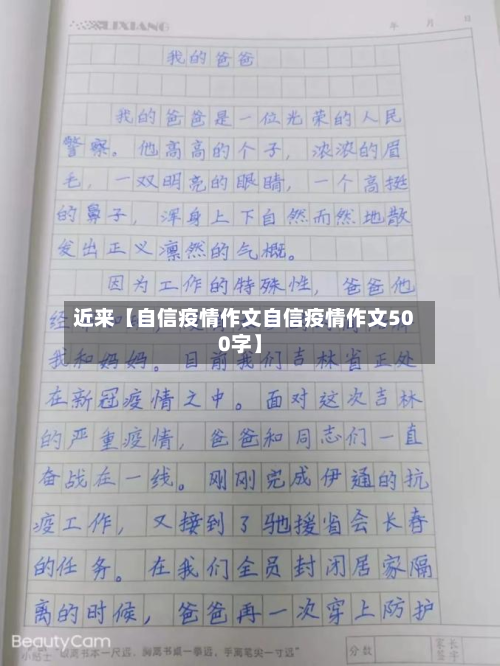 LIXIANG
年 月 日
我的爸爸
我的爸爸是一位光荣的人民
警察。他高高的个子，浓浓的眉
毛，一双明亮的眼睛，一个高挺
的鼻子，浑身上下自然而然地散
发出正义凛然的气概。
因为工作的特殊性，爸爸他
近来【自信疫情作文自信疫情作文50
0字】
我和妈妈。目前我们吉林省正处
在新冠疫情之中。面对这次吉林
的严重疫情，爸爸和同志们一直
奋战在一线。刚刚完成伊通的抗
疫工作，又接到了驰援省会长春
的任务。在我们全员封闭居家隔
离的时候，爸爸再一次穿上防护
BeautyCam
小贴士 眼离书本一尺远，胸离书桌一拳远，手离笔尖一寸远"
分数
家长
签字